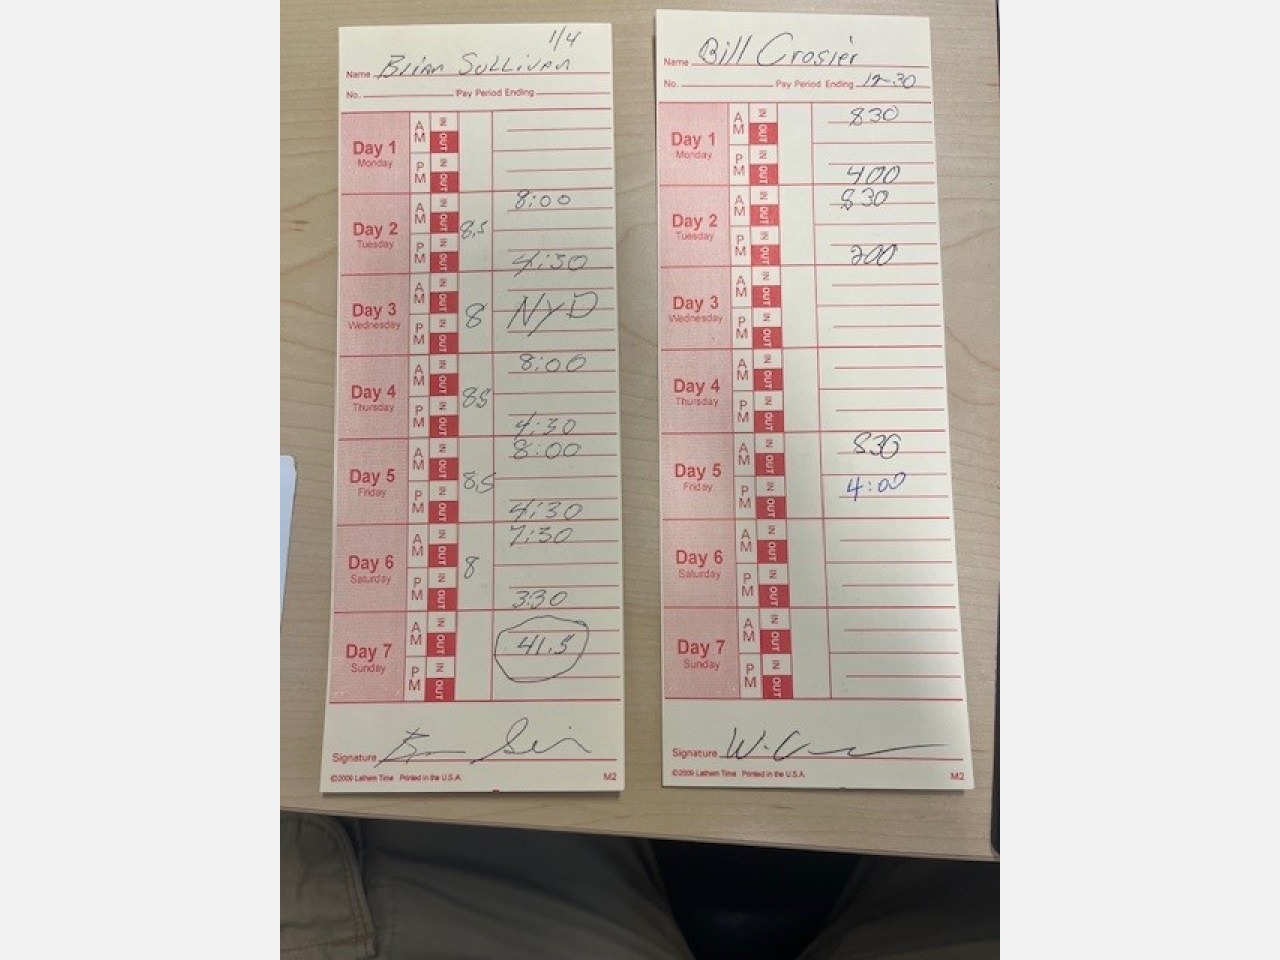 1/4
Name Brian Sullivan
No. Pay Period Ending
Day 1
Monday
AM IN OUT
PM IN OUT
Day 2
Tuesday
AM IN OUT 8:00
8.5
PM IN OUT 4:30
Day 3
Wednesday
AM IN OUT
8 NYD
PM IN OUT
Day 4
Thursday
AM IN OUT 8:00
8.5
PM IN OUT 4:30
Day 5
Friday
AM IN OUT 8:00
8.5
PM IN OUT 4:30
Day 6
Saturday
AM IN OUT 7:30
8
PM IN OUT 3:30
Day 7
Sunday
AM IN OUT
41.5
PM IN OUT
Signature
©2009 Lathem Time Printed in the U.S.A. M2
Name Bill Crosier
No. Pay Period Ending 12-30
Day 1
Monday
AM IN OUT 830
PM IN OUT 400
Day 2
Tuesday
AM IN OUT 830
PM IN OUT 200
Day 3
Wednesday
AM IN OUT
PM IN OUT
Day 4
Thursday
AM IN OUT
PM IN OUT
Day 5
Friday
AM IN OUT 830
PM IN OUT 4:00
Day 6
Saturday
AM IN OUT
PM IN OUT
Day 7
Sunday
AM IN OUT
PM IN OUT
Signature
©2009 Lathem Time Printed in the U.S.A. M2